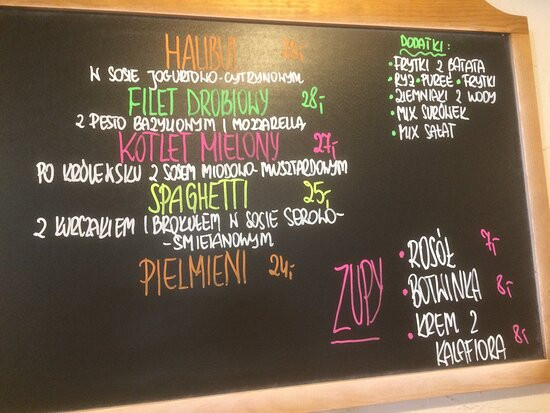 HALIBUT
W SOSIE JOGURTOWO-CYTRYNOWYM
FILET DROBIOWY 28,-
Z PESTO BAZYLIOWYM I MOZZARELLĄ
KOTLET MIELONY 27,-
PO KRÓLEWSKU Z SOSEM MIODOWO-MUSZTARDOWYM
SPAGHETTI 25,-
Z KURCZAKIEM I BROKUŁEM W SOSIE SEROWO-
-ŚMIETANOWYM
PIELMIENI 24,-
DODATKI:
•FRYTKI Z BATATA
•RYŻ •PUREÉ •FRYTKI
•ZIEMNIAKI Z WODY
•MIX SURÓWEK
•MIX SAŁAT
ZUPY
•ROSÓŁ 7,-
•BOTWINKA 8,-
•KREM Z
KALAFIORA 8,-